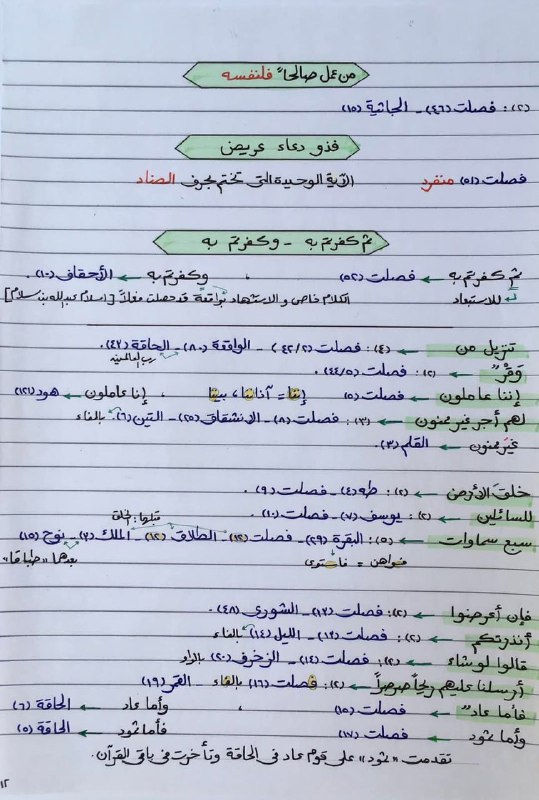 من عمل صالحاً فلنفسه
(٢): فصلت (٤٦) - الجاثية (١٥)
فذو دعاء عريض
فصلت (٥١) منفرد الآية الوحيدة التي تختم بحرف الضاد
ثم كفرتم به - وكفرتم به
ثم كفرتم به ← فصلت (٥٢) ، وكفرتم به ← الأحقاف (١٠).
للاستبعاد الكلام خاص و الاستشهاد بواقعة قد حصلت فعلاً [إسلام عبدالله بن سلام]
تنزيل من ← (٤): فصلت (٢/٤٢) - الواقعة (٨٠) - الحاقة (٤٣).
رب العالمين
وَقْرٌ ← (٢): فصلت (٥/٤٤).
إننا عاملون ← فصلت (٥) إننا = آذاننا، بيننا ، إنا عاملون ← هود (١٢١)
لهم أجر غير ممنون ← (٣): فصلت (٨) - الانشقاق (٢٥) - التين (٦). بالفاء
غير ممنون ← القلم (٣).
خلق الأرض ← (٢): طه (٤) - فصلت (٩).
للسائلين ← (٢): يوسف (٧) - فصلت (١٠). قبلها: الخلق
سبع سماوات ← (٥): البقرة (٢٩) - فصلت (١٢) - الطلاق (١٢) - الملك (٣) - نوح (١٥)
فسواهن = فاستوى بعدها "طباقا"
فإن أعرضوا ← (٢): فصلت (١٣) - الشورى (٤٨).
أنذرتكم ← (٢): فصلت (١٣) - الليل (١٤) بالفاء
قالوا لو شاء ← (٢): فصلت (١٤) - الزخرف (٢٠) بالواو
أرسلنا عليهم ريحاً صرصراً ← (٢): فصلت (١٦) بالفاء - القمر (١٩)
فأما عادٌ ← فصلت (١٥) ، وأما عاد ← الحاقة (٦)
وأما ثمود ← فصلت (١٧) فأما ثمود ← الحاقة (٥)
تقدمت "ثمود" على قوم عاد في الحاقة وتأخرت في باقي القرآن.
١٢